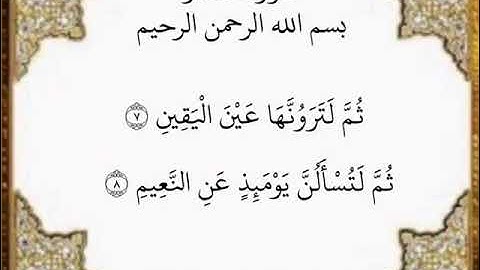 بسم الله الرحمن الرحيم
ثُمَّ لَتَرَوُنَّهَا عَيْنَ الْيَقِينِ ﴿٧﴾
ثُمَّ لَتُسْأَلُنَّ يَوْمَئِذٍ عَنِ النَّعِيمِ ﴿٨﴾